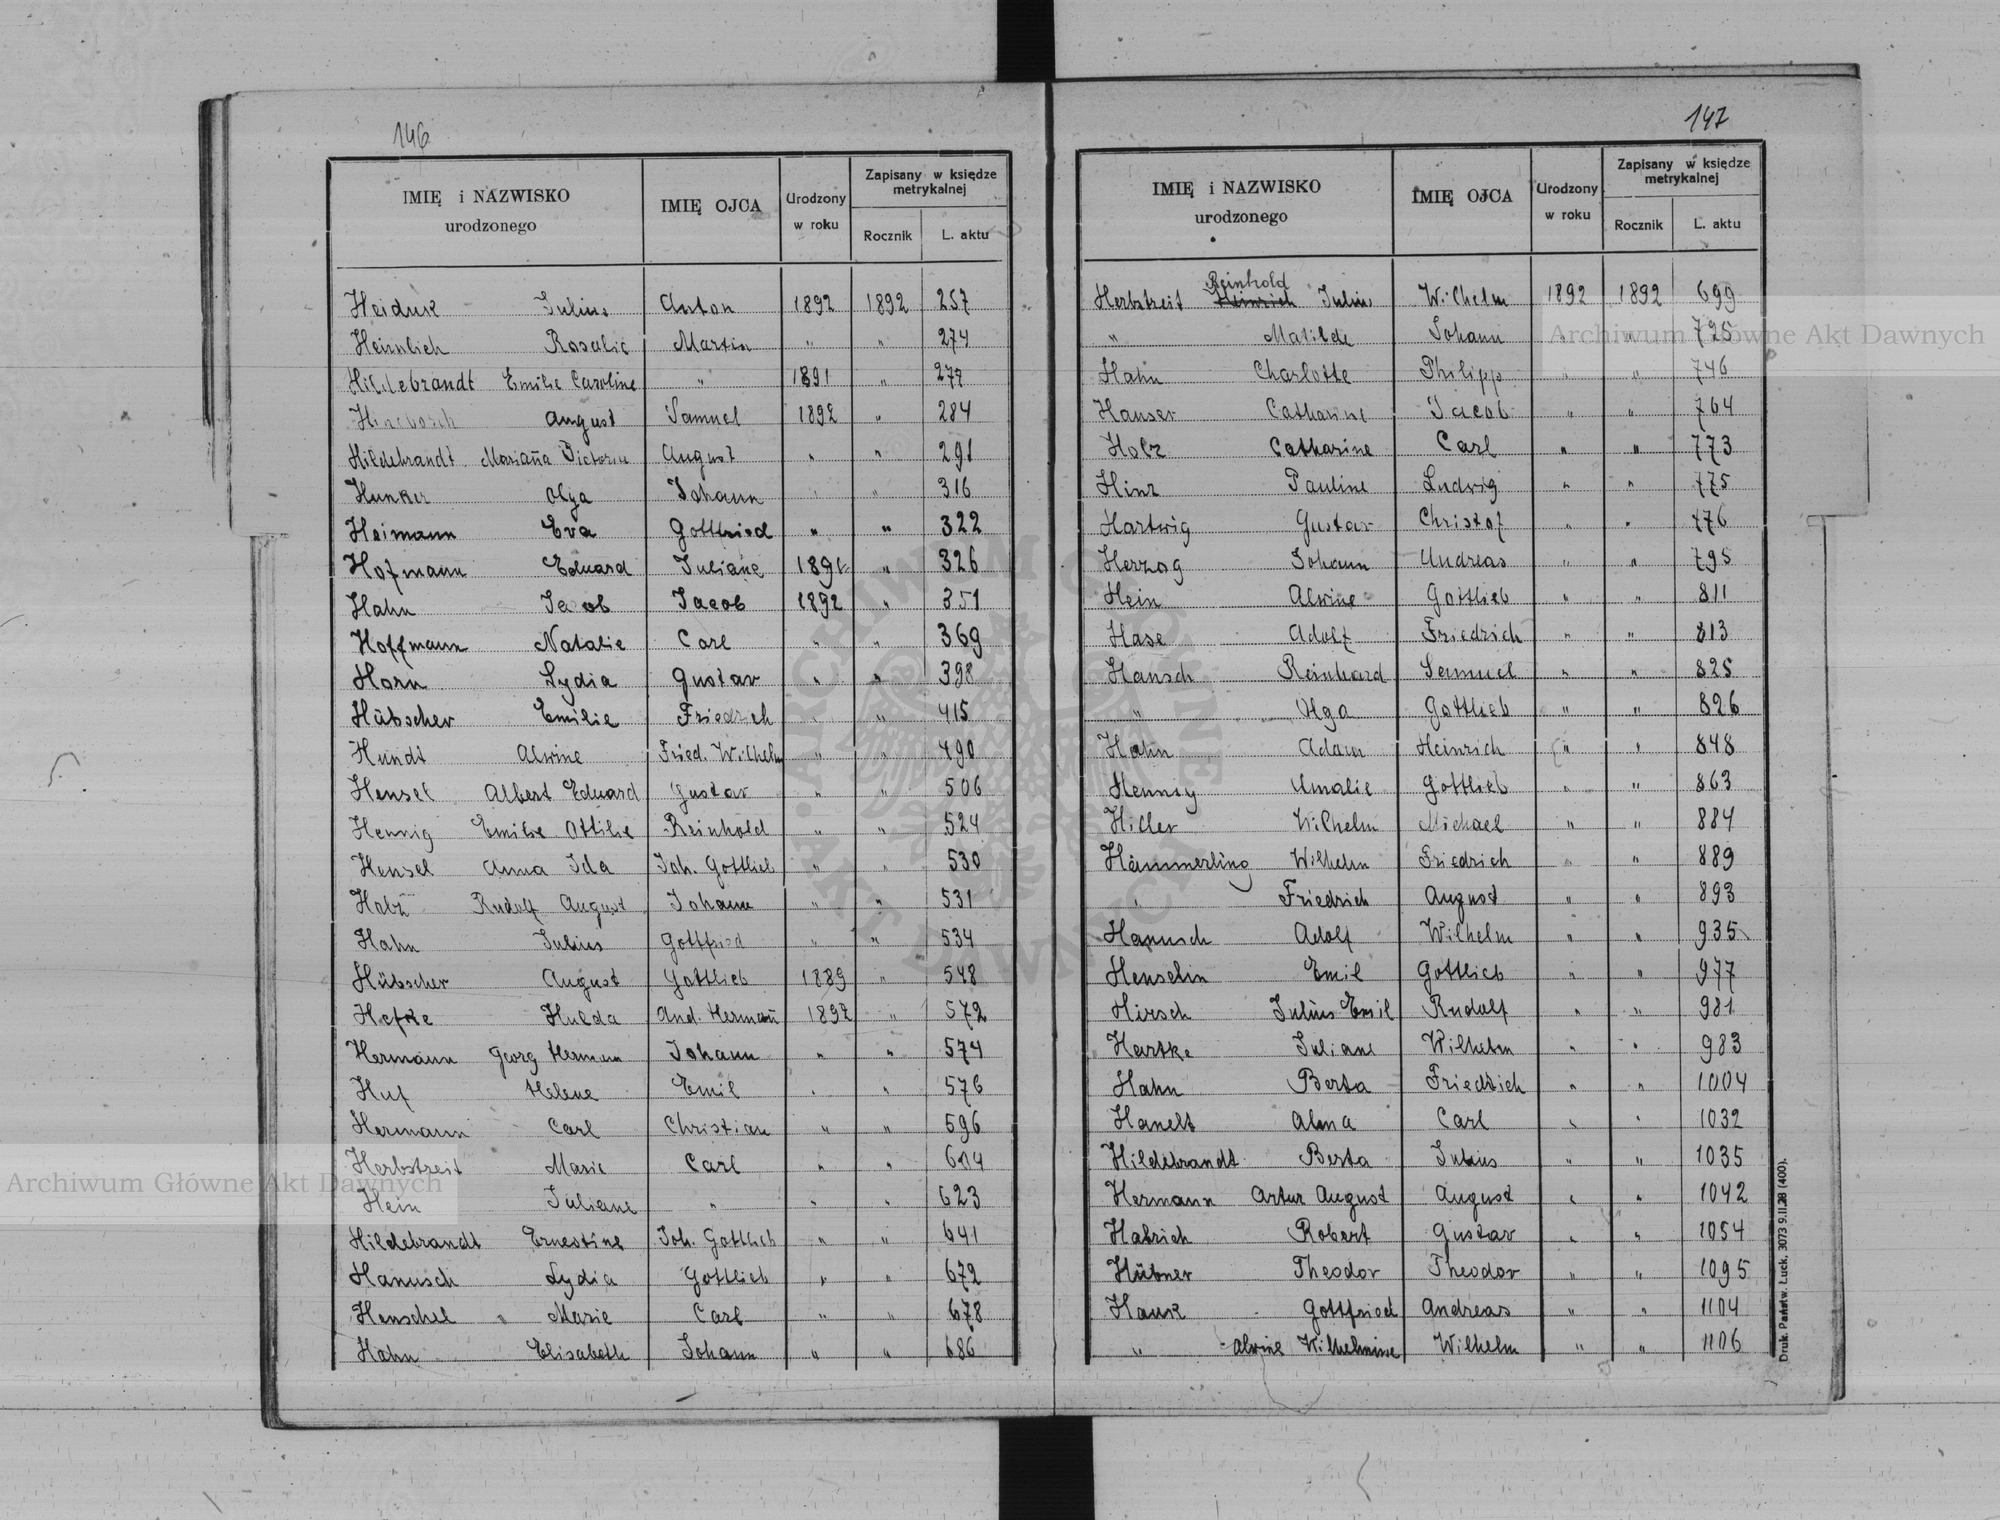 146
IMIĘ i NAZWISKO urodzonego IMIĘ OJCA Urodzony w roku Zapisany w księdze metrykalnej Rocznik L. aktu
Heiduk Julius Anton 1892 1892 257
Heinrich Rosalie Martin " " 274
Hildebrandt Emilie Caroline " 1891 " 277
August Samuel 1892 " 284
Hildebrandt Marianna Victoria August " " 291
Hunker Olga Johann " " 316
Heimann Eva Gottfried " " 322
Hofmann Eduard Juliane 1891 " 326
Hahn Jacob Jacob 1892 " 351
Hoffmann Natalie Carl " " 369
Horn Lydia Gustav " " 398
Hübscher Emilie Friedrich " " 415
Hundt Alwine Fried. Wilhelm " " 490
Hensel Albert Eduard Gustav " " 506
Hennig Emilie Ottilie Reinhold " " 524
Hensel Anna Ida Joh. Gottlieb " " 530
Holz Rudolf August Johann " " 531
Hahn Julius Gottfried " " 534
Hübscher August Gottlieb 1889 " 548
Hefke Hulda And. Hermañ 1892 " 572
Hermann Georg Herman Johann " " 574
Huf Helene Emil " " 576
Hermann Carl Christian " " 596
Herbstreit Marie Carl " " 614
Hein Juliane " " " 623
Hildebrandt Ernestine Joh. Gottlieb " " 641
Hanusch Lydia Gottlieb " " 672
Henschel Marie Carl " " 678
Hahn Elisabeth Johann " " 686
147
IMIĘ i NAZWISKO urodzonego IMIĘ OJCA Urodzony w roku Zapisany w księdze metrykalnej Rocznik L. aktu
Reinhold
Herbstreit Heinrich Julius Wilhelm 1892 1892 699
" Matilde Johann " " 725
Hahn Charlotte Philipp " " 746
Hauser Catharine Jacob " " 764
Holz Catharine Carl " " 773
Hinz Pauline Ludwig " " 775
Hartwig Gustav Christof " " 776
Herzog Johann Andreas " " 795
Hein Alwine Gottlieb " " 811
Hase Adolf Friedrich " " 813
Hansch Reinhard Samuel " " 825
" Olga Gottlieb " " 826
Hahn Adam Heinrich " " 848
Hennig Amalie Gottlieb " " 863
Hiller Wilhelm Michael " " 884
Hämmerling Wilhelm Friedrich " " 889
" Friedrich August " " 893
Hanusch Adolf Wilhelm " " 935
Henselin Emil Gottlieb " " 977
Hirsch Julius Emil Rudolf " " 981
Hartke Juliane Wilhelm " " 983
Hahn Berta Friedrich " " 1004
Hanelt Alma Carl " " 1032
Hildebrandt Berta Julius " " 1035
Hermann Artur August August " " 1042
Habrich Robert Gustav " " 1054
Hübner Theodor Theodor " " 1095
Hauk Gottfried Andreas " " 1104
" Alwine Wilhelmine Wilhelm " " 1106
Druk. Państw. Łuck. 3073 9.II.28 (400).
Archiwum Główne Akt Dawnych
Archiwum Główne Akt Dawnych
ARCHIWUM GŁÓWNE AKT DAWNYCH